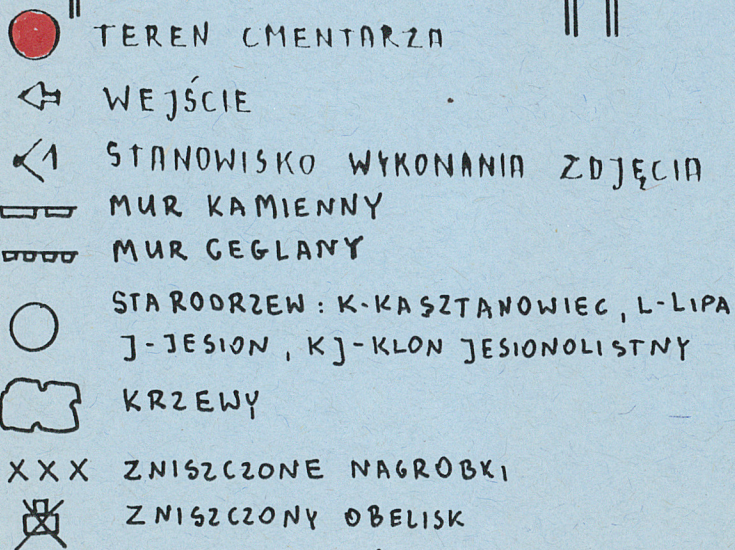 TEREN CMENTARZA
WEJŚCIE
1 STANOWISKO WYKONANIA ZDJĘCIA
MUR KAMIENNY
MUR CEGLANY
STARODRZEW : K-KASZTANOWIEC, L-LIPA
J-JESION, KJ-KLON JESIONOLISTNY
KRZEWY
XXX ZNISZCZONE NAGROBKI
ZNISZCZONY OBELISK